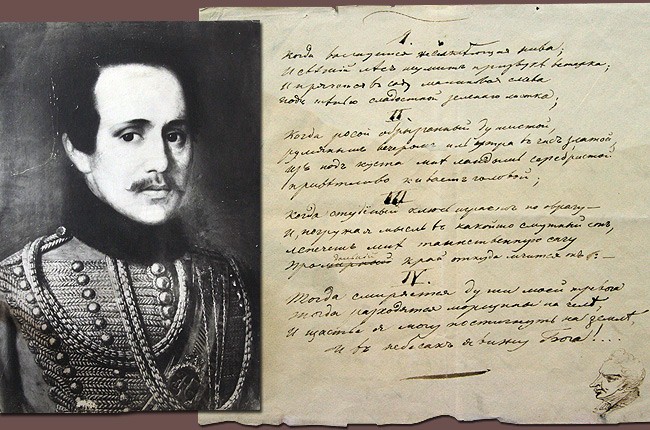 I.
Когда волнуется желтеющая нива;
И свѣжій лѣсъ шумитъ при звукѣ вѣтерка;
И прячется въ саду малиновая слива
Подъ тѣнью сладостной зеленаго листка;
II.
Когда росой обрызганный душистой,
Румянымъ вечеромъ иль утра въ часъ златой,
Изъ подъ куста мнѣ ландышъ серебристой
Привѣтливо киваетъ головой;
III
Когда студеный ключь играетъ по оврагу—
И, погружая мысль въ какой-то смутный сонъ,
Лепечетъ мнѣ таинственную сагу
Про мирный край откуда мчится онъ:—
IV.
Тогда смиряется души моей тревога
Тогда расходятся морщины на челѣ
И щастье я могу постигнуть на землѣ,
И въ небесахъ я вижу Бога!....